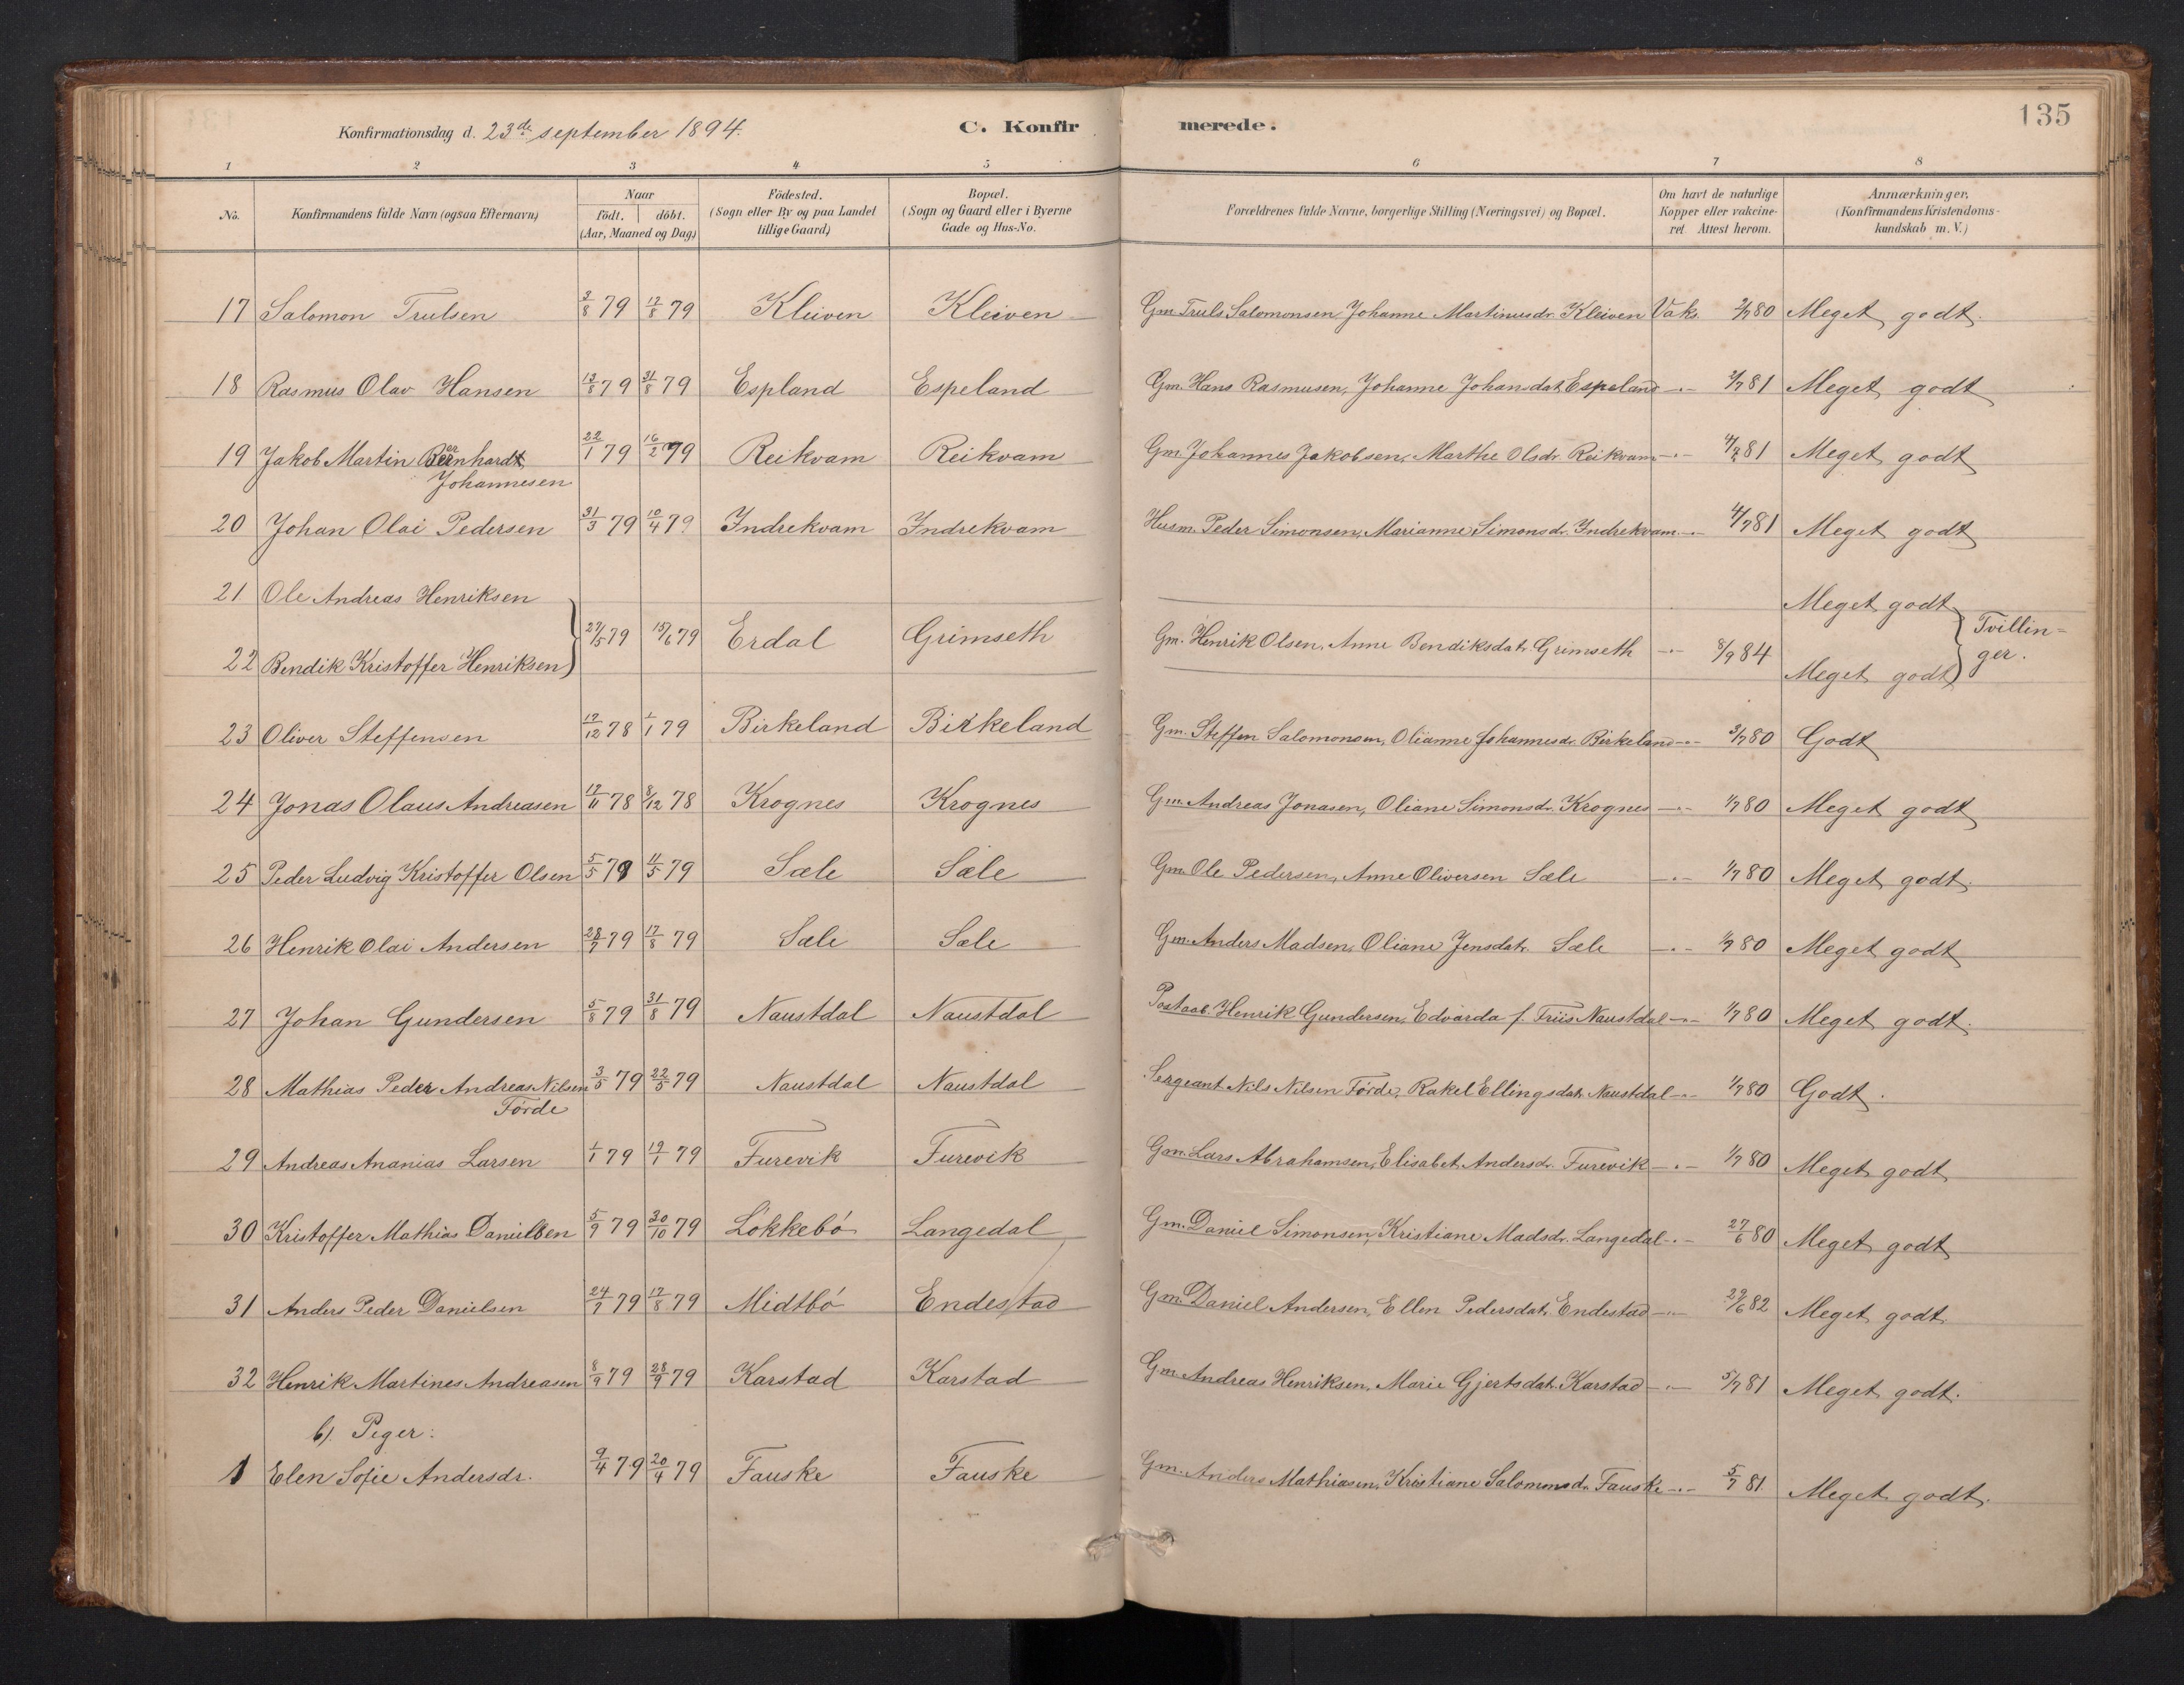 135
Konfirmationsdag d. 23de september 1894. C. Konfirmerede.
1 2 3 4 5 6 7 8
No. Konfirmandens fulde Navn (ogsaa Efternavn) Naar født. døbt. (Aar, Maaned og Dag) Födested. (Sogn eller By og paa Landet tillige Gaard) Bopæl. (Sogn og Gaard eller i Byerne Gade og Hus-No. Forældrenes fulde Navne, borgerlige Stilling (Næringsvei) og Bopæl. Om havt de naturlige Kopper eller vakcineret. Attest herom. Anmærkninger. (Konfirmandens Kristendomskundskab m. V.)
17 Salomon Trulsen 3/8 79 17/8 79 Kleiven Kleiven Gm. Truls Salomonsen, Johanne Martinusdr. Kleiven Vaks. 2/7 80 Meget godt.
18 Rasmus Olav Hansen 13/8 79 31/8 79 Espland Espeland Gm. Hans Rasmusen, Johanne Johansdat. Espeland -"- 2/7 81 Meget godt
19 Jakob Martin Bernhard Johannesen 22/1 79 16/2 79 Reikvam Reikvam Gm. Johannes Jakobsen, Marthe Olsdr. Reikvam -"- 4/7 81 Meget godt
20 Johan Olai Pedersen 31/3 79 10/4 79 Indrekvam Indrekvam Husm. Peder Simonsen, Marianne Simonsdr. Indrekvam -"- 4/7 81 Meget godt
21 Ole Andreas Henriksen Meget godt
27/5 79 15/6 79 Erdal Grimseth Gm. Henrik Olsen, Anne Bendiksdat. Grimseth -"- 8/9 84 Tvillinger.
22 Bendik Kristoffer Henriksen Meget godt
23 Oliver Steffensen 12/12 78 1/1 79 Birkeland Birkeland Gm. Steffen Salomonsen, Olianne Johannesdr. Birkeland -"- 3/7 80 Godt
24 Jonas Olaus Andreasen 12/11 78 8/12 78 Krognes Krognes Gm. Andreas Jonasen, Oliane Simonsdr. Krognes -"- 1/7 80 Meget godt
25 Peder Ludvig Kristoffer Olsen 5/5 79 11/5 79 Sæle Sæle Gm. Ole Pedersen, Anne Oliversen Sæle -"- 1/7 80 Meget godt.
26 Henrik Olai Andersen 28/7 79 17/8 79 Sæle Sæle Gm. Anders Madsen, Oliane Jensdatr. Sæle -"- 1/7 80 Meget godt
27 Johan Gundersen 5/8 79 31/8 79 Naustdal Naustdal Postaab. Henrik Gundersen, Edvarda f. Friis Naustdal -"- 1/7 80 Meget godt.
28 Mathias Peder Andreas Nilsen Førde 3/5 79 22/5 79 Naustdal Naustdal Sergeant Nils Nilsen Førde, Rakel Ellingsdatr. Naustdal -"- 1/7 80 Godt.
29 Andreas Ananias Larsen 1/1 79 19/1 79 Furevik Furevik Gm. Lars Abrahamsen, Elisabet Andersdr. Furevik -"- 1/7 80 Meget godt
30 Kristoffer Mathias Danielsen 5/9 79 30/10 79 Løkkebø Langedal Gm. Daniel Simonsen, Kristiane Madsdr. Langedal -"- 27/6 80 Meget godt
31 Anders Peder Danielsen 24/7 79 17/8 79 Midtbø Endestad Gm. Daniel Andersen, Ellen Pedersdat. Endestad -"- 29/6 82 Meget godt.
32 Henrik Martines Andreasen 8/9 79 28/9 79 Karstad Karstad Gm. Andreas Henriksen, Marie Gjertsdat. Karstad -"- 5/7 81 Meget godt.
b). Piger:
1 Elen Sofie Andersdr. 9/4 79 20/4 79 Fauske Fauske Gm. Anders Mathiasen, Kristiane Salomonsdr. Fauske -"- 5/7 81. Meget godt.